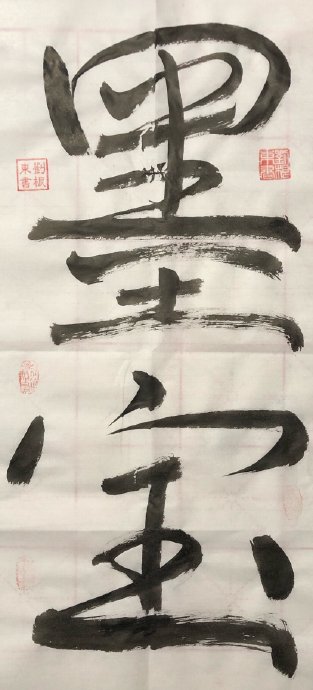 墨
宝
劉根
東書